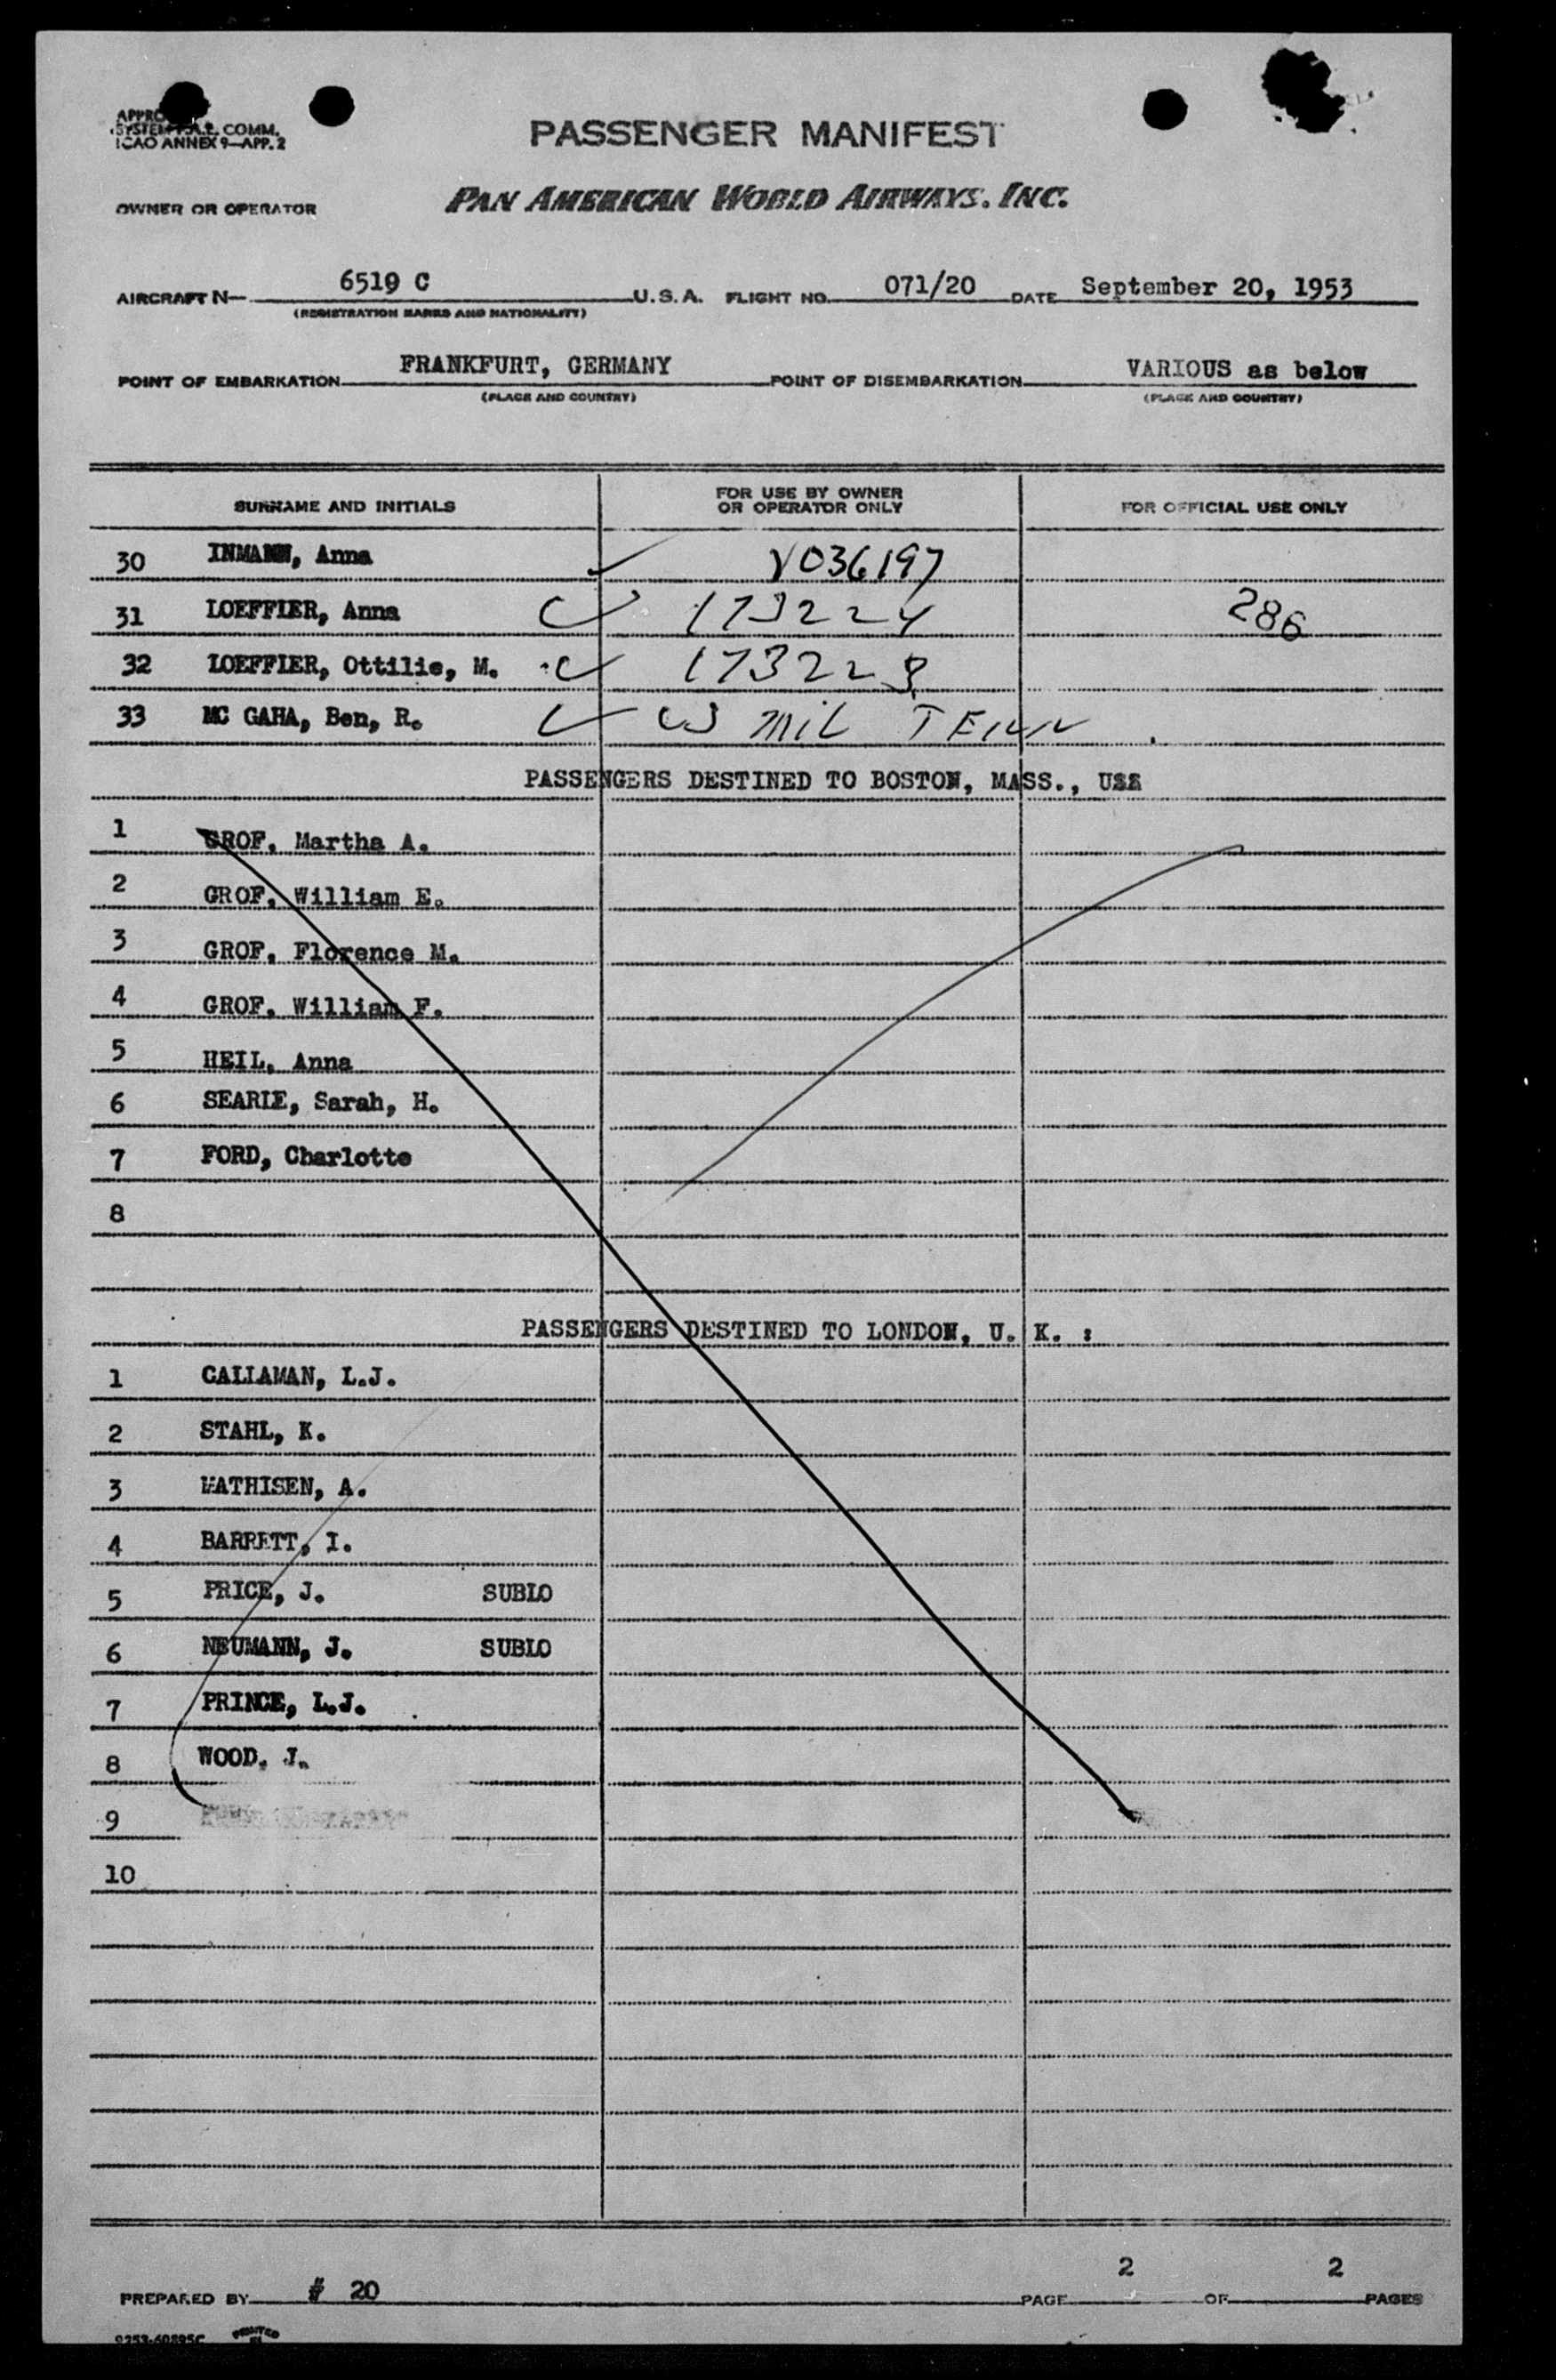 SYSTEM F.A.L. COMM.
ICAO ANNEX 9—APP. 2
PASSENGER MANIFEST
OWNER OR OPERATOR PAN AMERICAN WORLD AIRWAYS. INC.
AIRCRAFT N— 6519 C U.S.A. FLIGHT NO. 071/20 DATE September 20, 1953
(REGISTRATION MARKS AND NATIONALITY)
POINT OF EMBARKATION FRANKFURT, GERMANY POINT OF DISEMBARKATION VARIOUS as below
(PLACE AND COUNTRY) (PLACE AND COUNTRY)
SURNAME AND INITIALS FOR USE BY OWNER OR OPERATOR ONLY FOR OFFICIAL USE ONLY
30 INMANN, Anna V036197
31 LOEFFLER, Anna 173224 286
32 LOEFFLER, Ottilie, M. 173223
33 MC GAHA, Ben, R. US MIL TENN
PASSENGERS DESTINED TO BOSTON, MASS., USA
1 GROF, Martha A.
2 GROF, William E.
3 GROF, Florence M.
4 GROF, William F.
5 HEIL, Anna
6 SEARLE, Sarah, H.
7 FORD, Charlotte
8
PASSENGERS DESTINED TO LONDON, U. K. :
1 CALLAMAN, L.J.
2 STAHL, K.
3 MATHISEN, A.
4 BARRETT, I.
5 PRICE, J. SUBLO
6 NEUMANN, J. SUBLO
7 PRINCE, L.J.
8 WOOD, J.
9
10
PREPARED BY # 20 PAGE 2 OF 2 PAGES